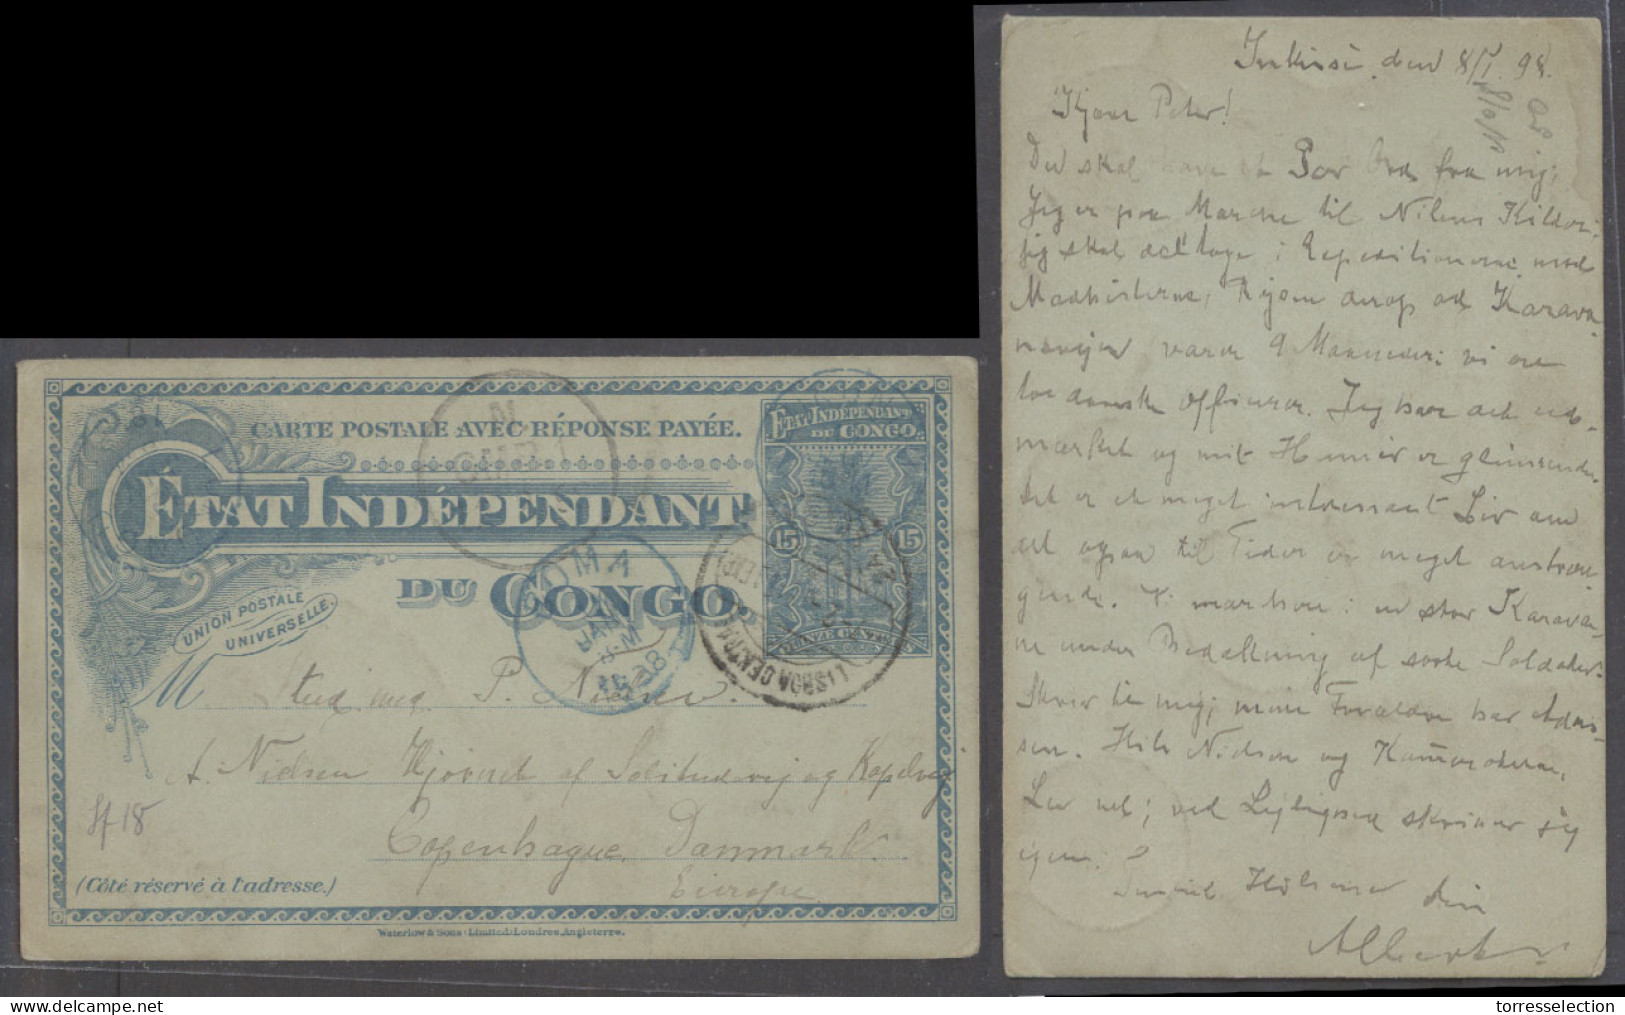 CARTE POSTALE AVEC RÉPONSE PAYÉE.
ÉTAT INDÉPENDANT
DU CONGO.
UNION POSTALE
UNIVERSELLE.
ÉTAT INDÉPENDANT
DU CONGO.
15 15
BOMA
JANV
LISBOA CENTRAL
M Stud. med. P. Nielsen.
A. Nielsen Hjørnet af Solitudevej og Kapelvej
Copenhague. Danmark.
Europe
Sf 18
(Côté réservé à l'adresse.)
Waterlow & Sons Limited. Londres, Angleterre.
Inkissi den 8/I. 98.
Kjære Peter!
Du skal have et Par Ord fra mig;
Jeg er paa Marche til Nilens Kilder;
jeg skal deltage i Expeditionerne mod
Madhisterne, Rejsen derop ad Karava-
nevejen varer 9 Maaneder; vi ere
to danske Officerer. Jeg har det ud-
mærket og mit Humør er glimrende.
Det er et meget interessant Liv om
det ogsaa til Tider er meget anstren-
gende. Vi marchere i en stor Karava-
ne under Bedækning af sorte Soldater.
Skriv til mig; mine Forældre har Adres-
sen. Hils Nielsen og Kammeraterne.
Lev vel; ved Lejlighed skriver jeg
igen.
Din
Albert
torresselection